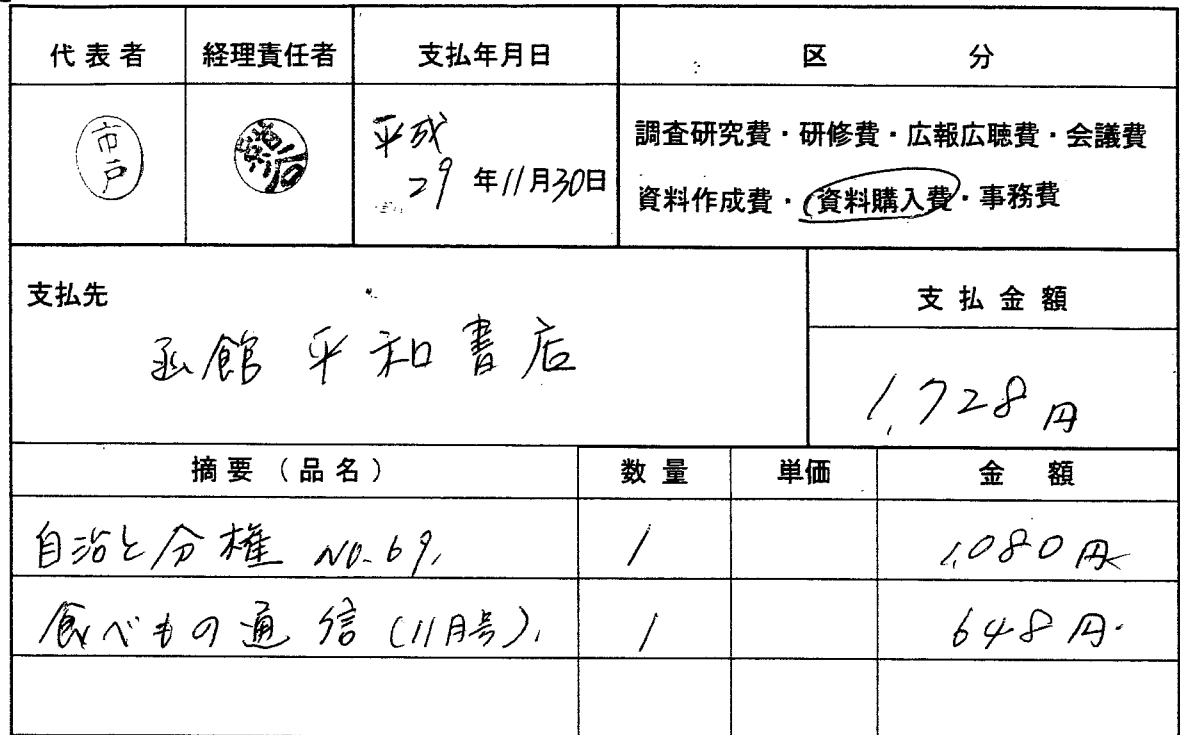 代表者 経理責任者 支払年月日 区分
市戸
平成
29年11月30日
調査研究費・研修費・広報広聴費・会議費
資料作成費・資料購入費・事務費
支払先 支払金額
函館平和書店
1,728円
摘要(品名) 数量 単価 金額
自治と分権 No.69, 1 1,080円
食べもの通信(11月号), 1 648円